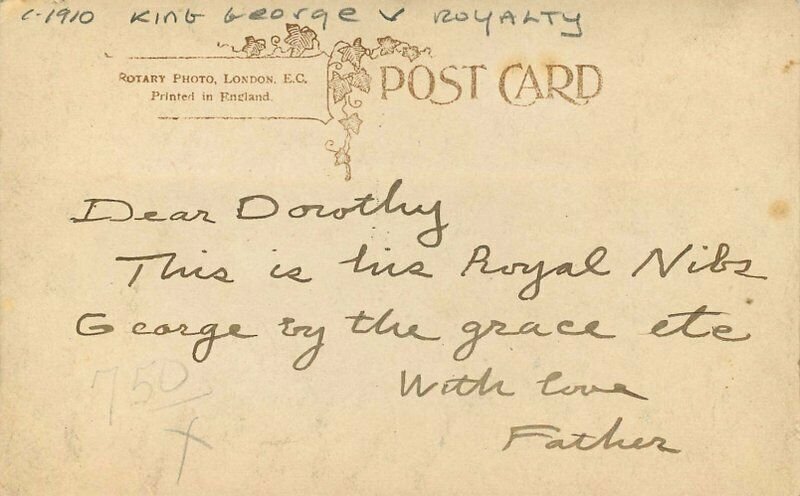 c-1910 King George V ROYALTY
ROTARY PHOTO, LONDON, E.C.
Printed in England.
POST CARD
Dear Dorothy
This is his Royal Nibs
George by the grace etc
With love
Father
750
x